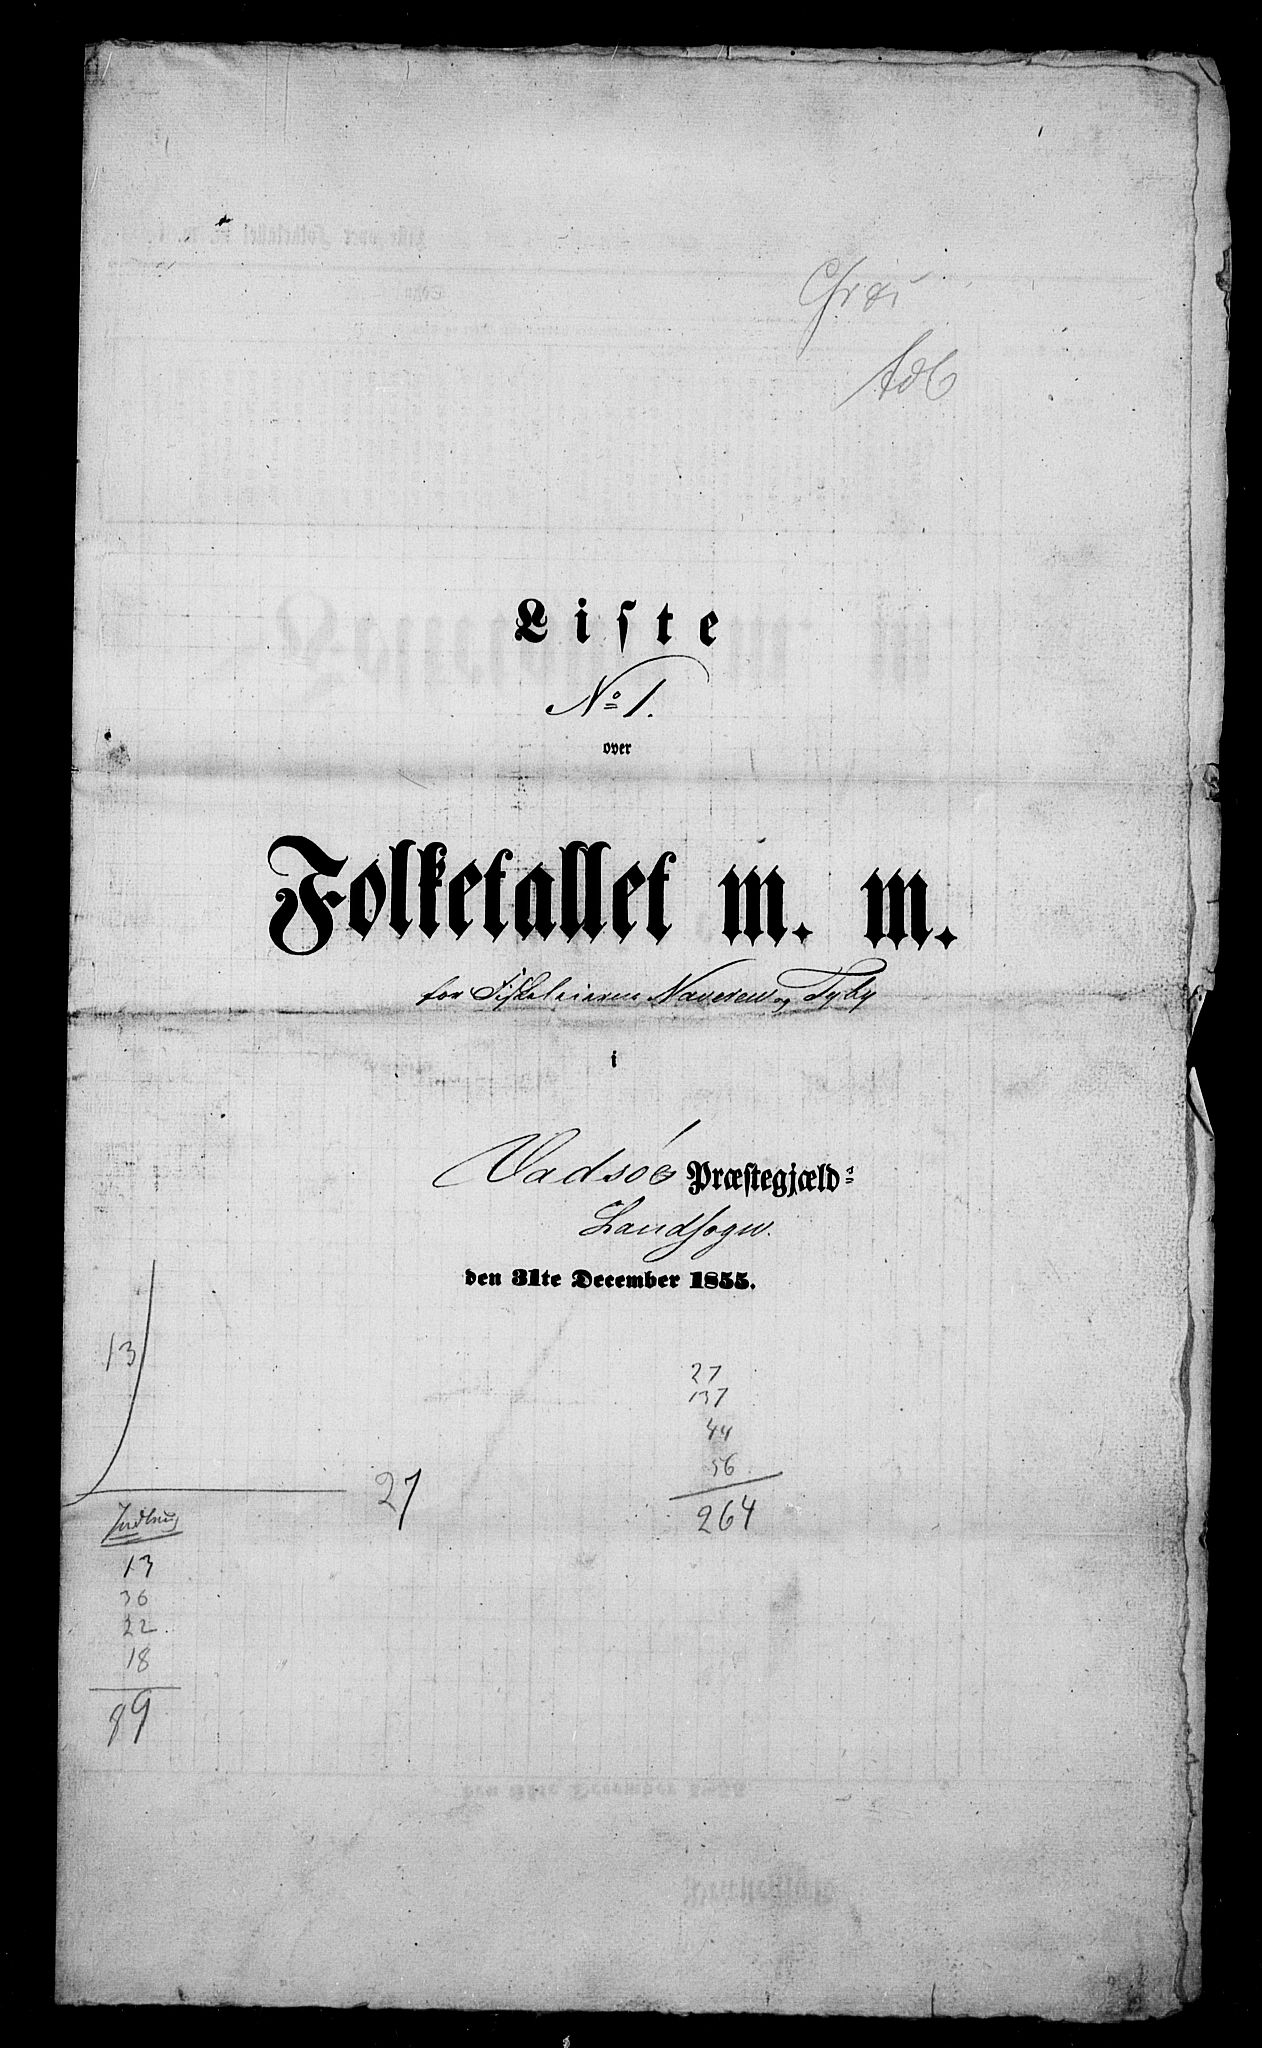 Liste
No 1.
over
Folketallet m. m.
for Fiskeleierne Naveren og Tyby
i
Vadsöe Præstegjælds
Landsogn.
den 31te December 1855.
13
27
137
44
56
264
27
13
36
22
18
89